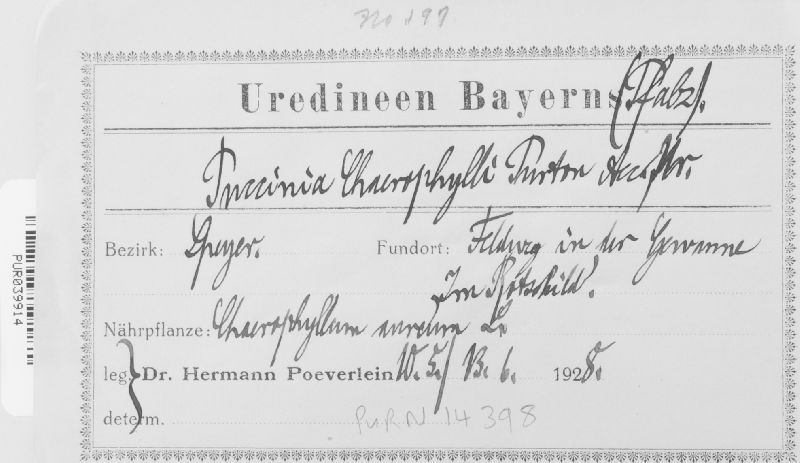 Uredineen Bayerns (Pfalz).
Puccinia Chaerophylli Purton
Bezirk: Speyer. Fundort: Feldweg in der Gewanne
Im
Nährpflanze: Chaerophyllum aureum L.
leg. Dr. Hermann Poeverlein 10. 5./13. 6. 1928.
determ.
PURN 14398
PUR039914